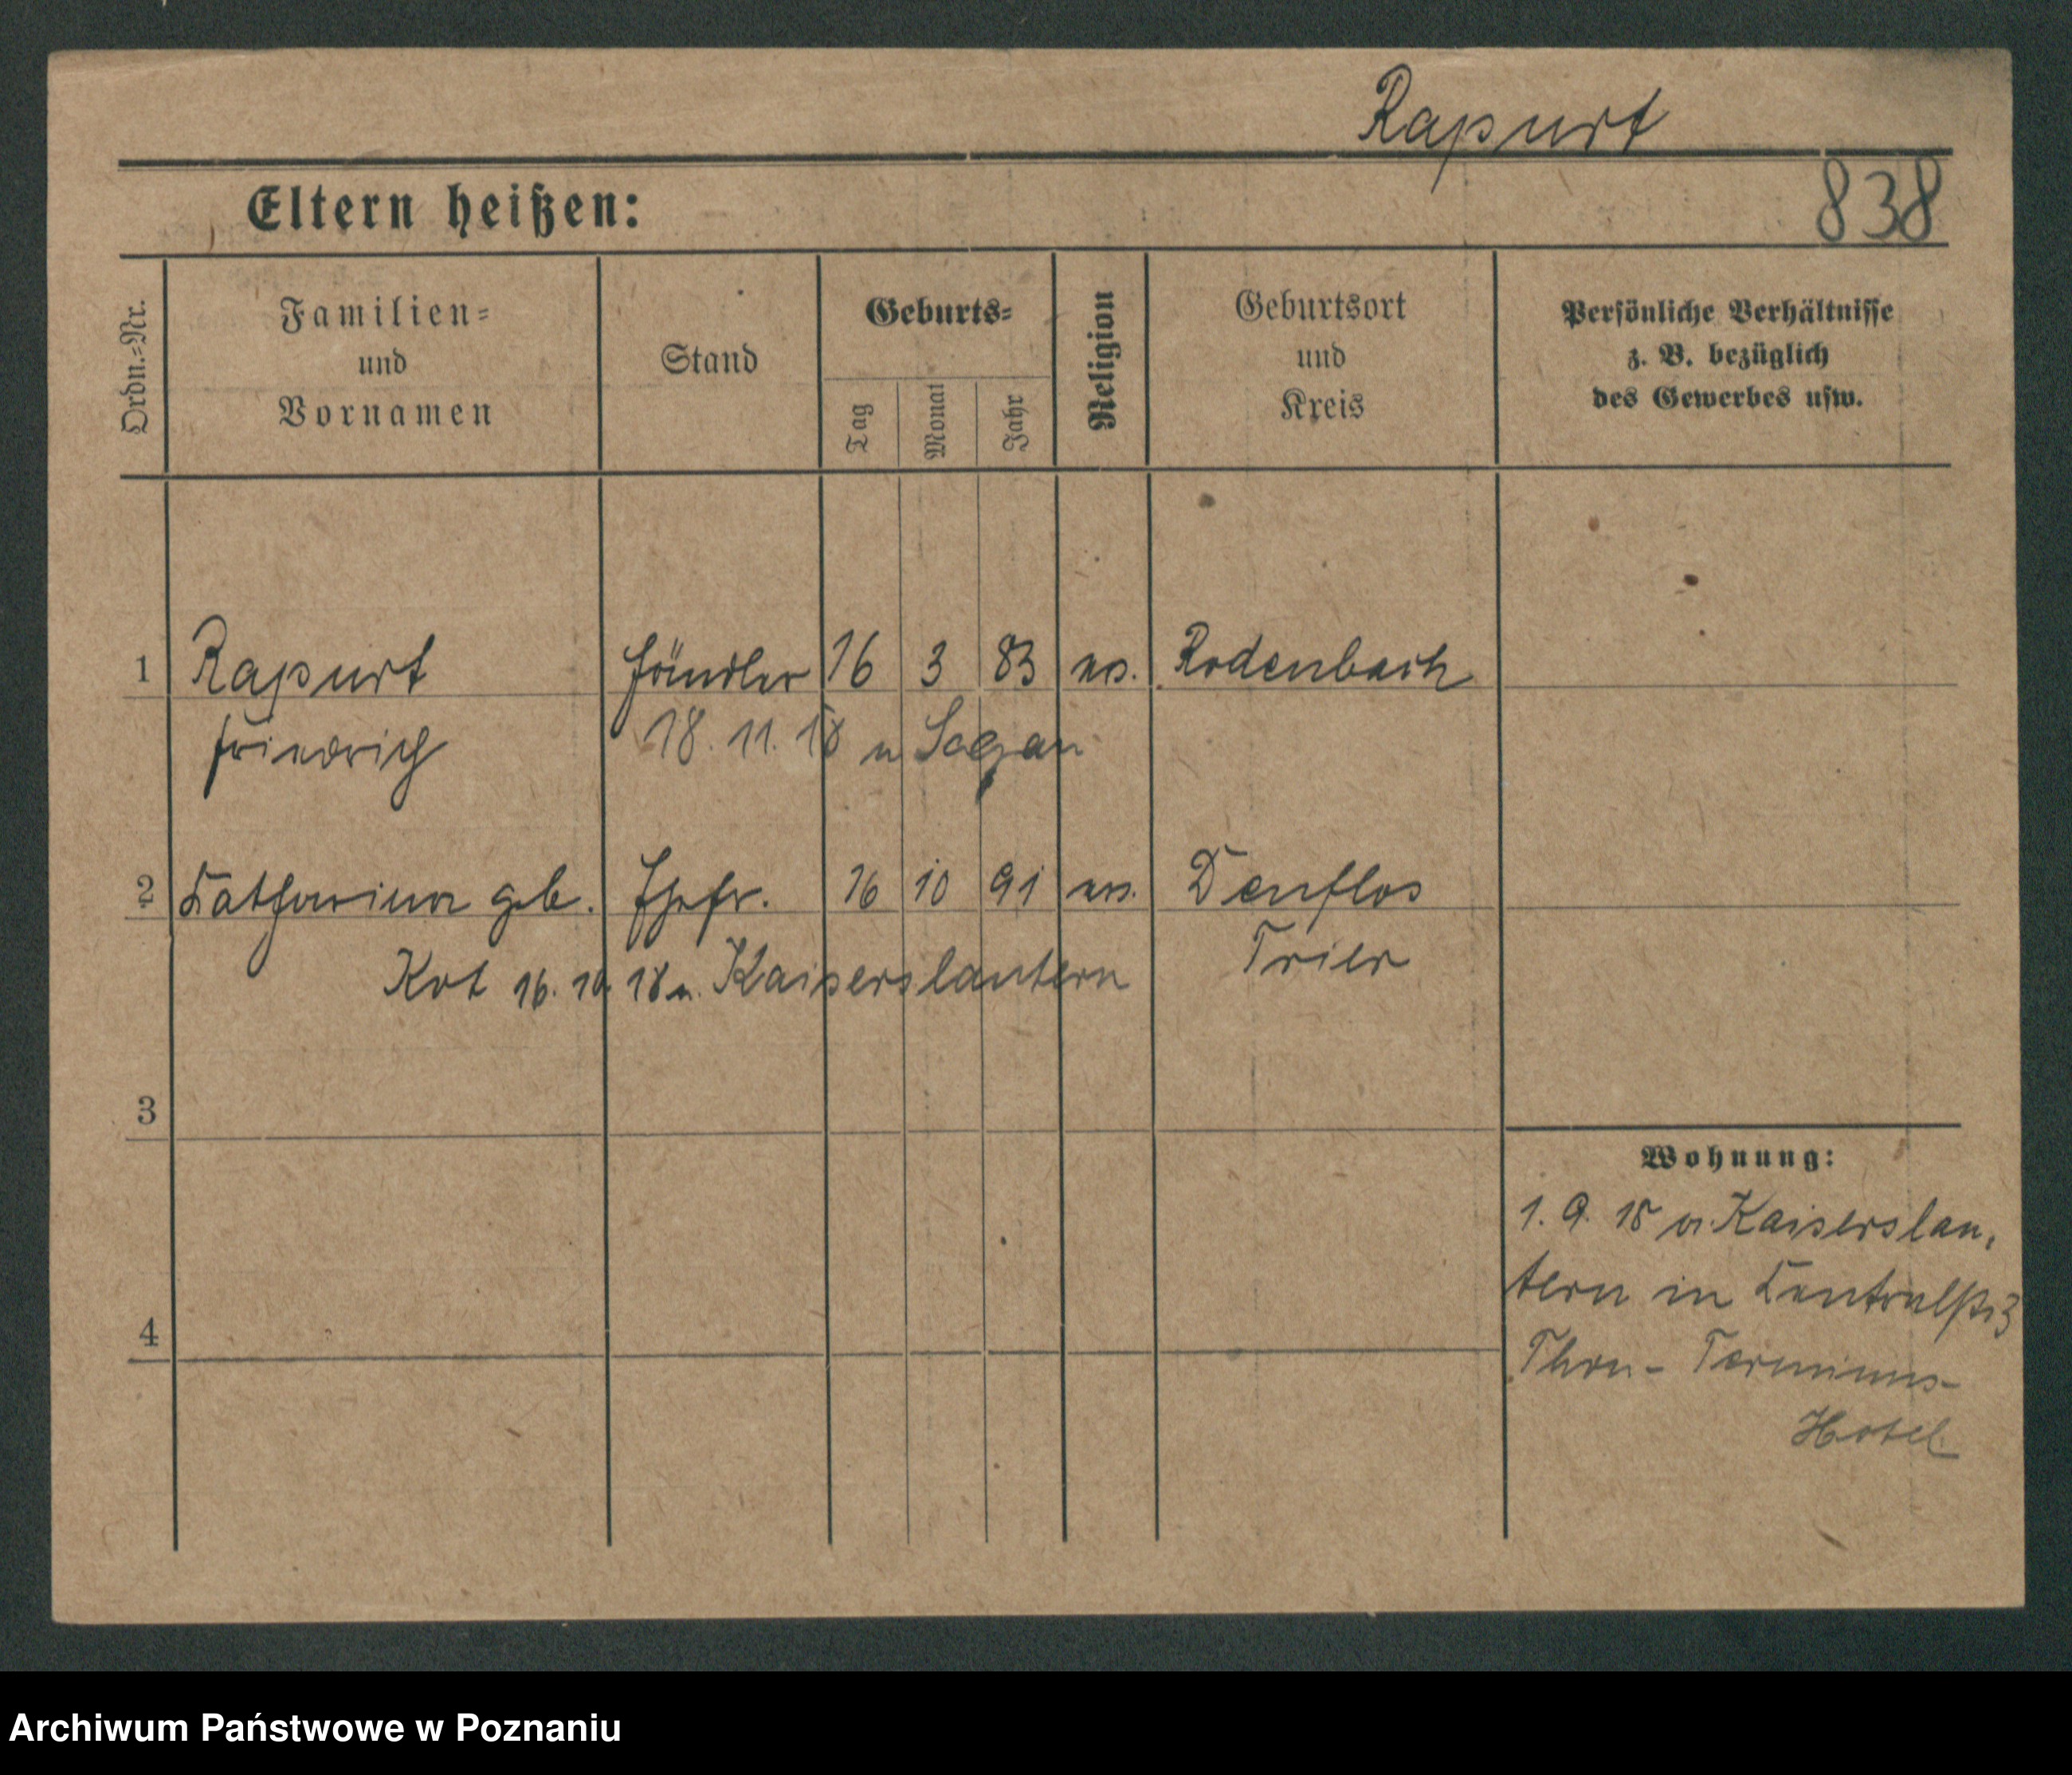 Rapurt
Eltern heißen:
838
Ordn.=Nr.
Familien=
und
Vornamen
Stand
Geburts=
Tag
Monat
Jahr
Religion
Geburtsort
und
Kreis
Persönliche Verhältnisse
z. B. bezüglich
des Gewerbes usw.
1 Rapurt Händler 16 3 83 Rodenbach
Friedrich 18. 11. 18 n Sagan
2 Katharina geb. Ehefr. 16 10 91 Trier
Kot 16. 10. 18 n. Kaiserslautern
3
4
Wohnung:
1. 9. 18 v. Kaiserslau-
tern in
Thorn-
Hotel
Archiwum Państwowe w Poznaniu